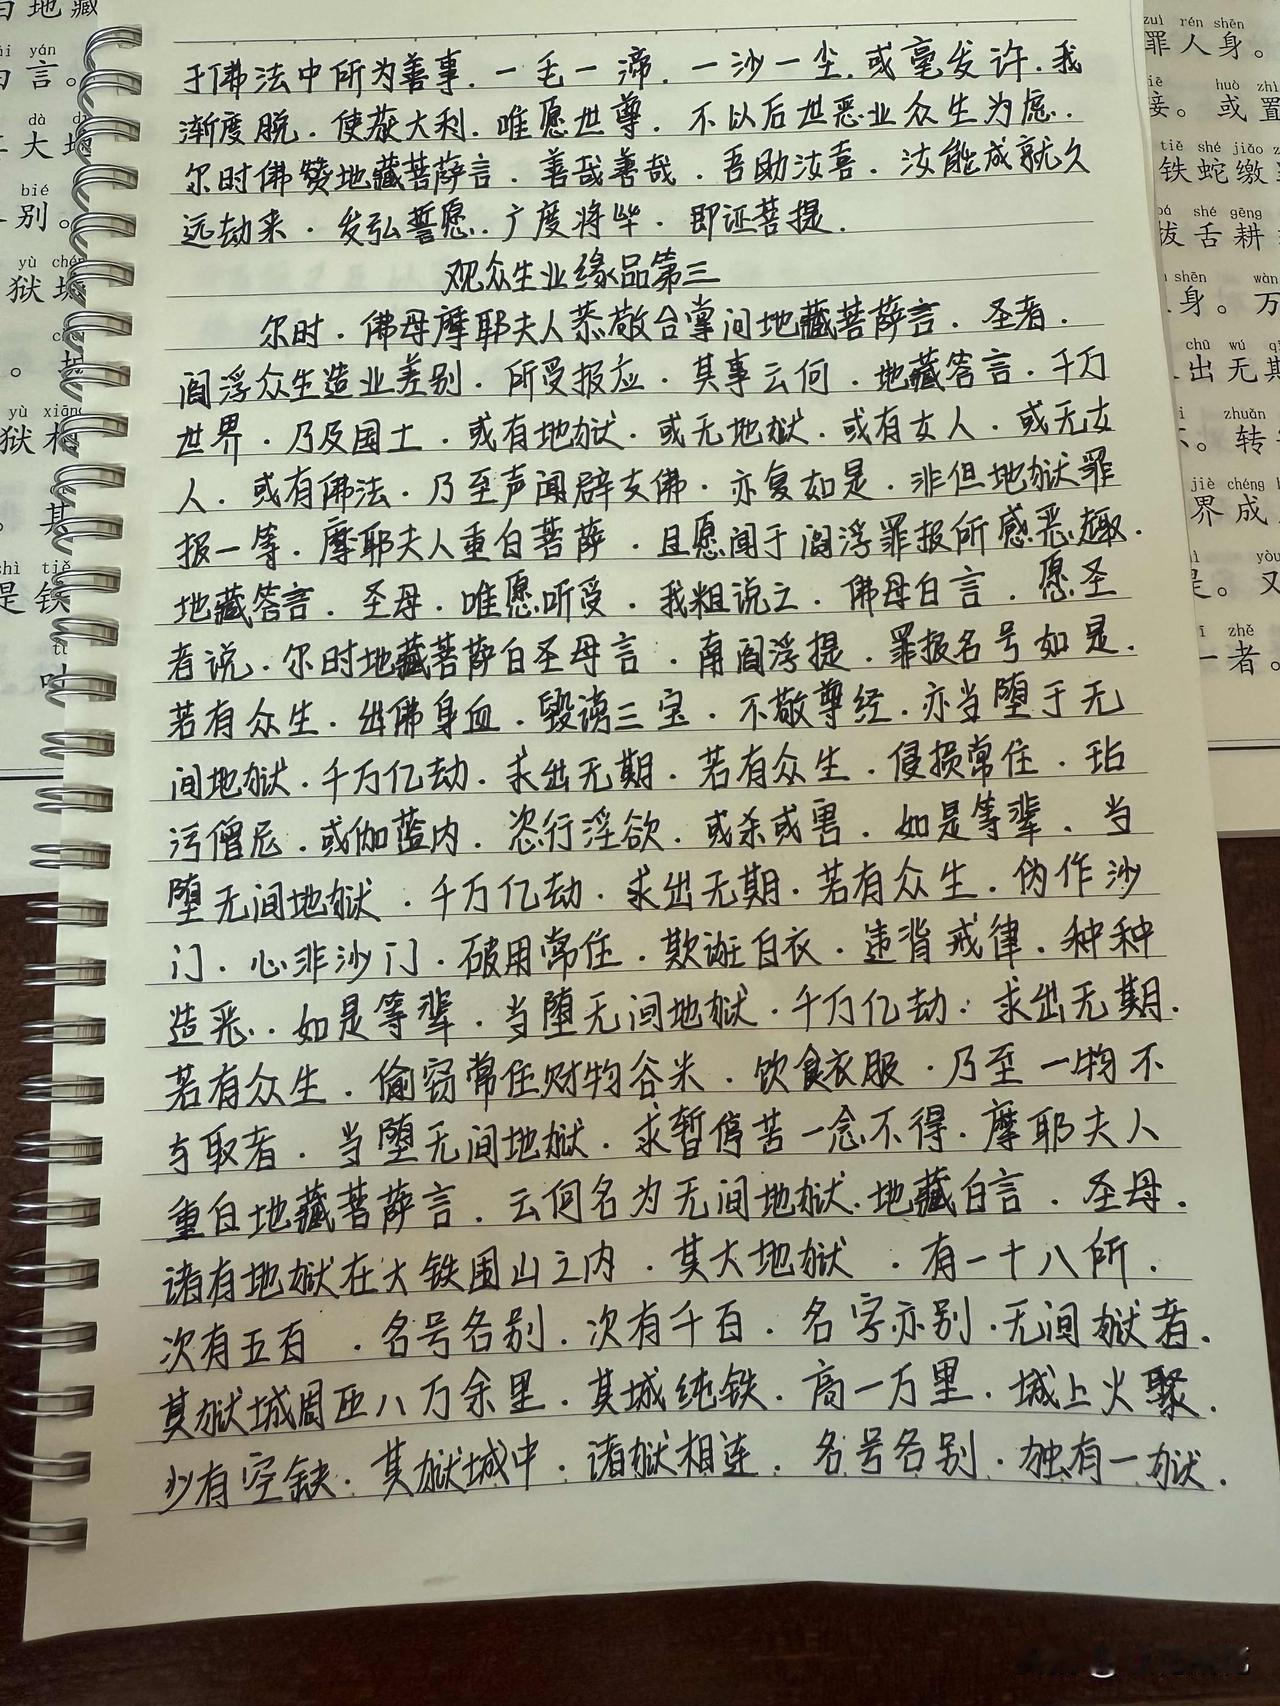 于佛法中所为善事.一毛一渧.一沙一尘.或毫发许.我
渐度脱.使获大利.唯愿世尊.不以后世恶业众生为虑.
尔时佛赞地藏菩萨言.善哉善哉.吾助汝喜.汝能成就久
远劫来.发弘誓愿.广度将毕.即证菩提.
观众生业缘品第三
尔时.佛母摩耶夫人恭敬合掌问地藏菩萨言.圣者.
阎浮众生造业差别.所受报应.其事云何.地藏答言.千万
世界.乃及国土.或有地狱.或无地狱.或有女人.或无女
人.或有佛法.乃至声闻辟支佛.亦复如是.非但地狱罪
报一等.摩耶夫人重白菩萨.且愿闻于阎浮罪报所感恶趣.
地藏答言.圣母.唯愿听受.我粗说之.佛母白言.愿圣
者说.尔时地藏菩萨白圣母言.南阎浮提.罪报名号如是.
若有众生.出佛身血.毁谤三宝.不敬尊经.亦当堕于无
间地狱.千万亿劫.求出无期.若有众生.侵损常住.玷
污僧尼.或伽蓝内.恣行淫欲.或杀或害.如是等辈.当
堕无间地狱.千万亿劫.求出无期.若有众生.伪作沙
门.心非沙门.破用常住.欺诳白衣.违背戒律.种种
造恶..如是等辈.当堕无间地狱.千万亿劫.求出无期.
若有众生.偷窃常住财物谷米.饮食衣服.乃至一物不
与取者.当堕无间地狱.求暂停苦一念不得.摩耶夫人
重白地藏菩萨言.云何名为无间地狱.地藏白言.圣母.
诸有地狱在大铁围山之内.其大地狱.有一十八所.
次有五百.名号各别.次有千百.名字亦别.无间狱者.
其狱城周匝八万余里.其城纯铁.高一万里.城上火聚.
少有空缺.其狱城中.诸狱相连.名号各别.独有一狱.
白地藏
yán
白言。
dà
大地
bié
别。
yù
狱
yù xiāng
狱
其
tiě
是铁
zuì rén shēn
罪人身。
huò zhì
接。或置
tiě shé jiǎo
铁蛇缴
bá shé gēng
拔舌耕
shēn wàn
身。万
chū wú
出无期
zhuǎn
转
jiè chéng
界成
yòu
是。又
zhě
一者。